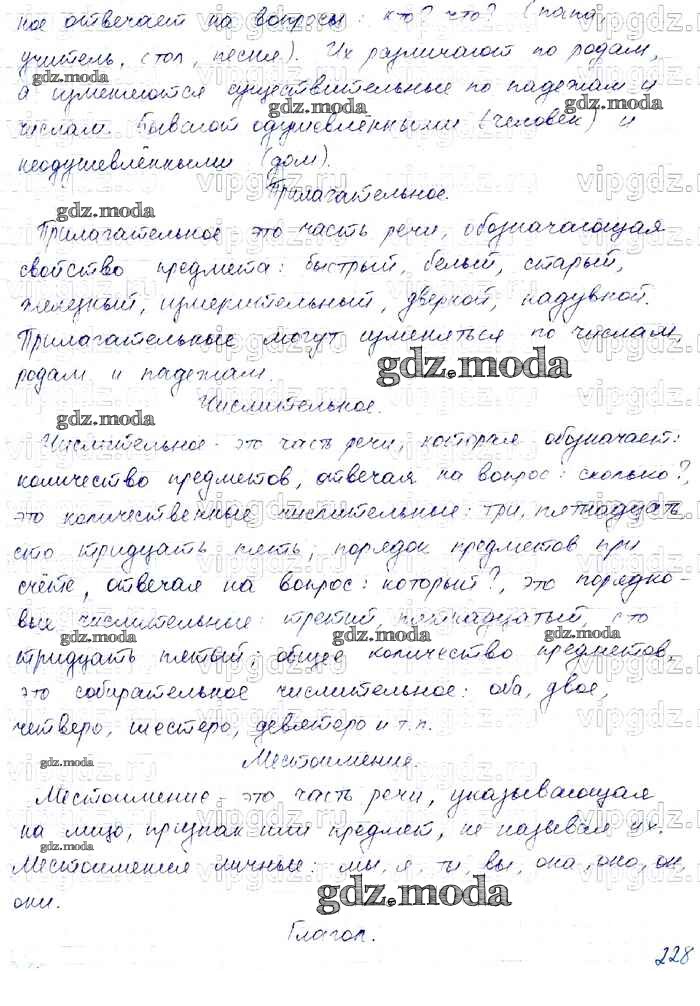 ное отвечает на вопросы: кто? что? (папа,
учитель, стол, песня). Их различают по родам,
а изменяются существительные по падежам и
числам. Бывают одушевлёнными (человек) и
неодушевлёнными (дом).
Прилагательное.
Прилагательное - это часть речи, обозначающая
свойство предмета: быстрый, белый, старый,
железный, измерительный, дверной, надувной.
Прилагательные могут изменяться по числам,
родам и падежам.
Числительное.
Числительное - это часть речи, которая обозначает:
количество предметов, отвечая на вопрос: сколько?,
это количественные числительные: три, пятнадцать
сто тридцать пять; порядок предметов при
счёте, отвечая на вопрос: который?, это порядко-
вые числительные: третий, пятнадцатый, сто
тридцать пятый; общее количество предметов,
это собирательное числительное: оба, двое,
четверо, шестеро, девятеро и т.п.
Местоимение.
Местоимение - это часть речи, указывающая
на лицо, признак или предмет, не называя их.
Местоимения личные: мы, я, ты, вы, она, оно, он,
они.
Глагол.
228